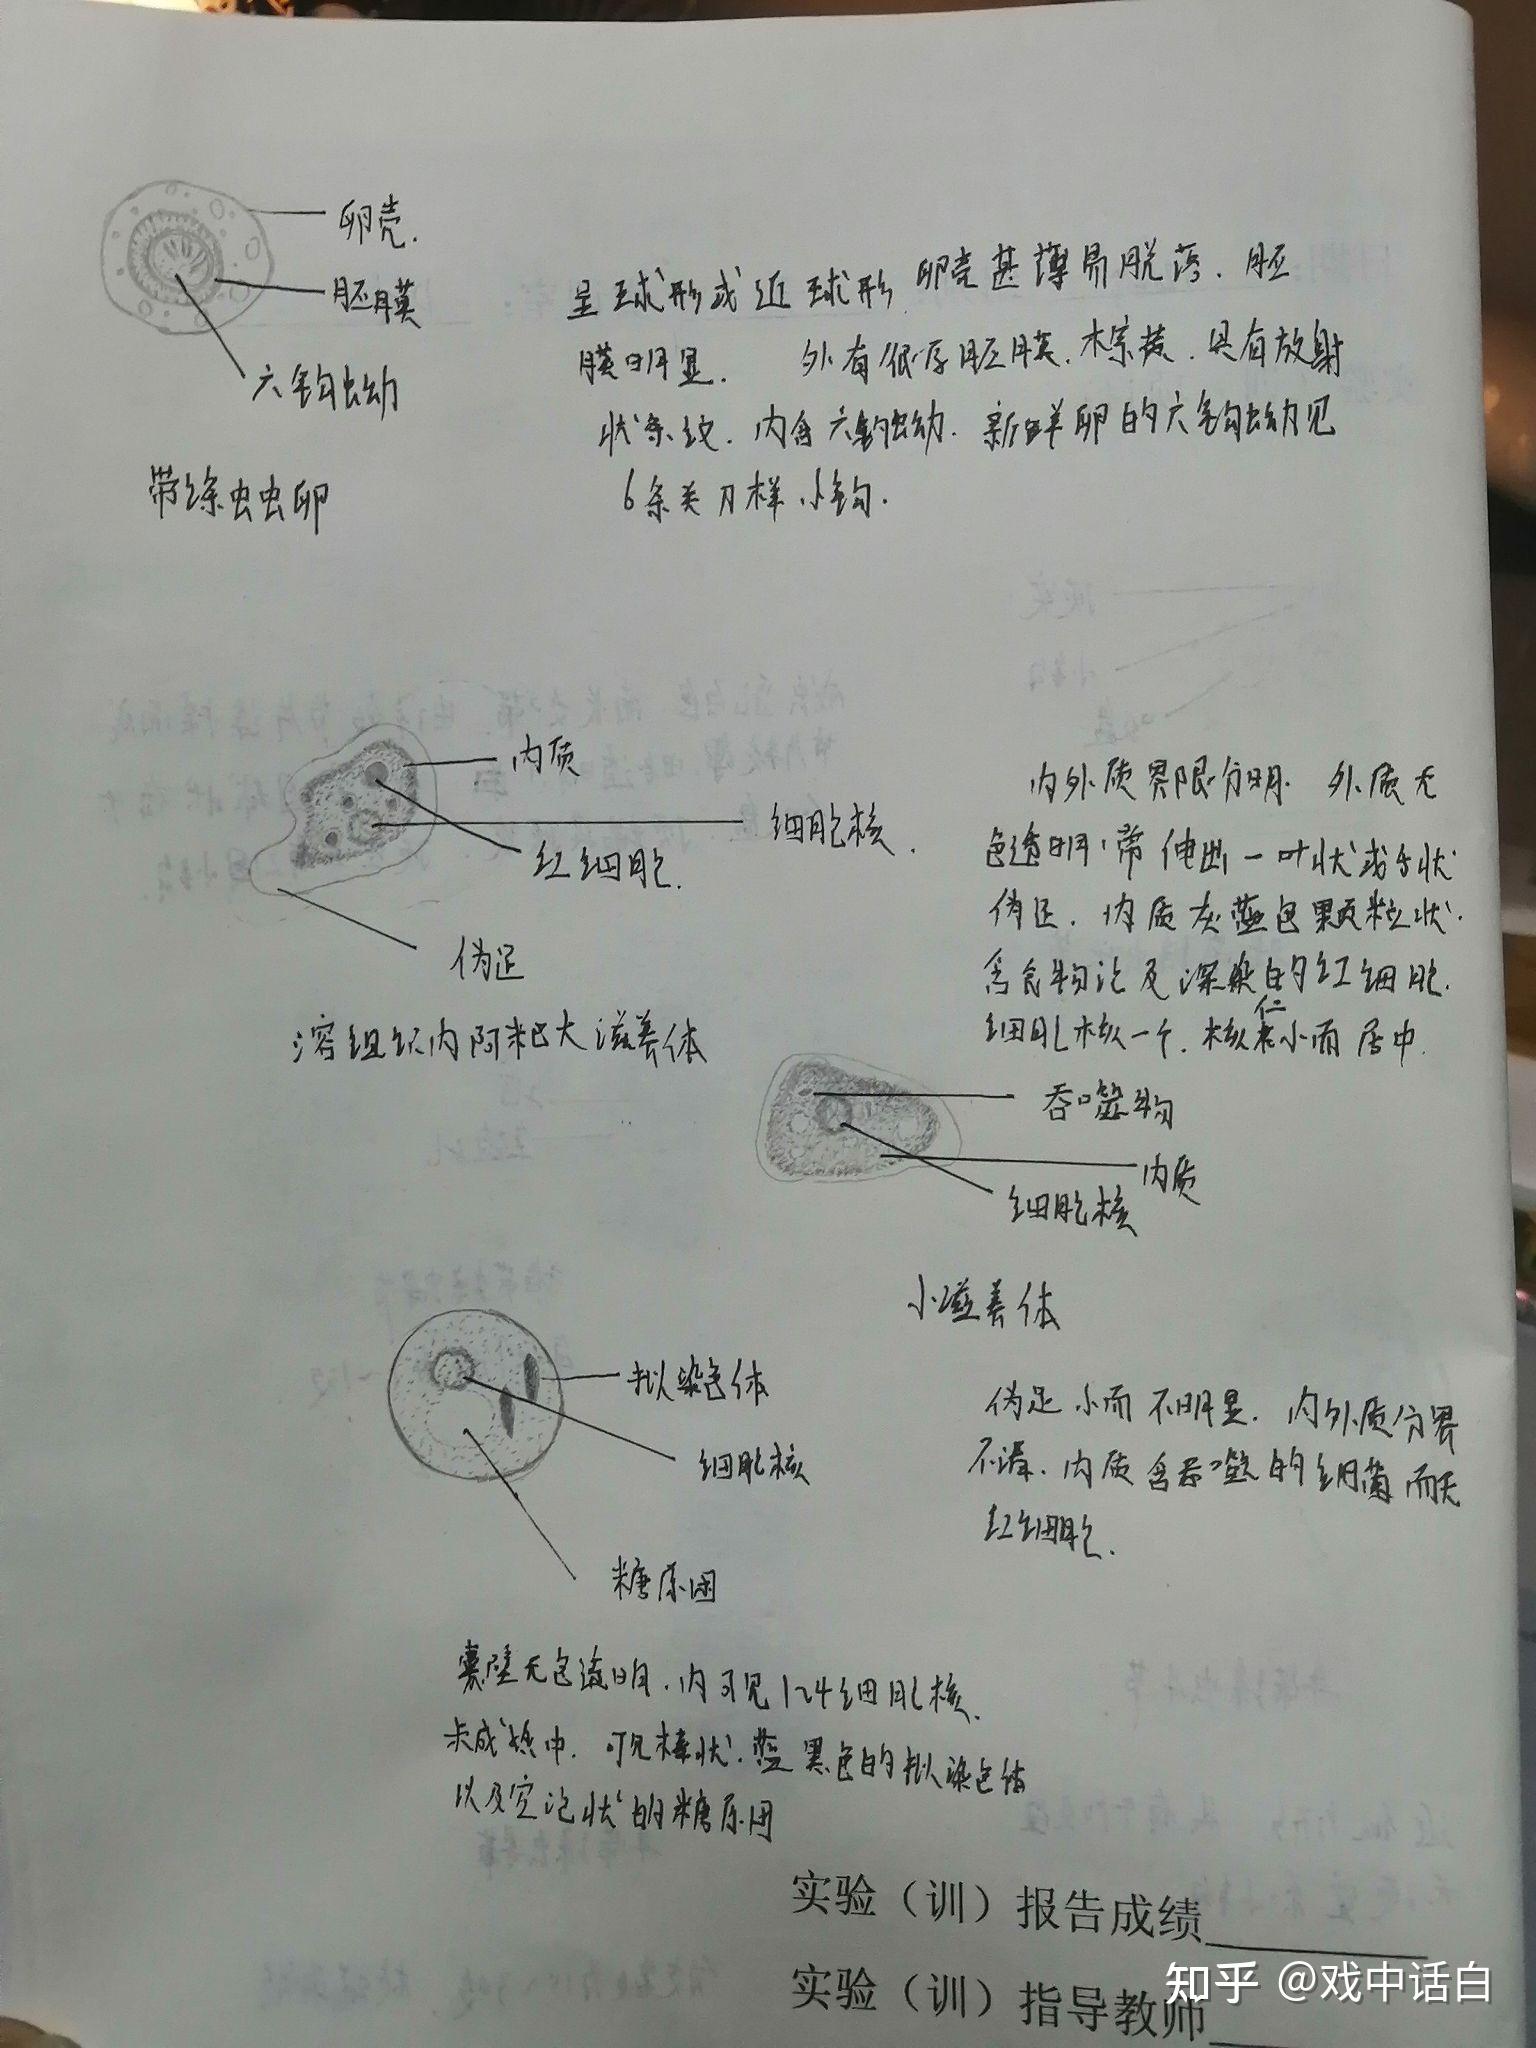 卵壳.
胚膜
六钩蚴
带绦虫虫卵
呈球形或近球形 卵壳甚薄易脱落. 胚
膜明显. 外有很厚胚膜. 棕黄. 具有放射
状条纹. 内含六钩蚴. 新鲜卵的六钩蚴见
6条 刀样小钩.
内质
细胞核.
红细胞.
伪足
溶组织内阿粑大滋养体
内外质界限分明. 外质无
色透明,常伸出一叶状或舌状
伪足. 内质灰蓝色颗粒状.
含食物泡及深染的红细胞.
细胞核一个. 核仁小而居中.
吞噬物
内质
细胞核
小滋养体
伪足小而不明显. 内外质分界
不清. 内质含吞噬的细菌而无
红细胞.
拟染色体
细胞核
糖原团
囊壁无色透明. 内可见1~4细胞核.
未成熟中. 可见棒状. 蓝黑色的拟染色体
以及空泡状的糖原团
实验（训）报告成绩
实验（训）指导教师
知乎 @戏中话白